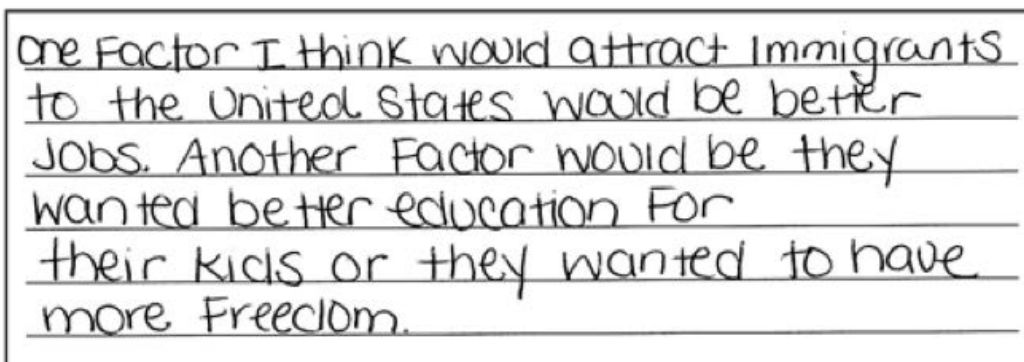 One Factor I think would attract Immigrants
to the United States would be better
Jobs. Another Factor would be they
wanted better education For
their kids or they wanted to have
more Freedom.